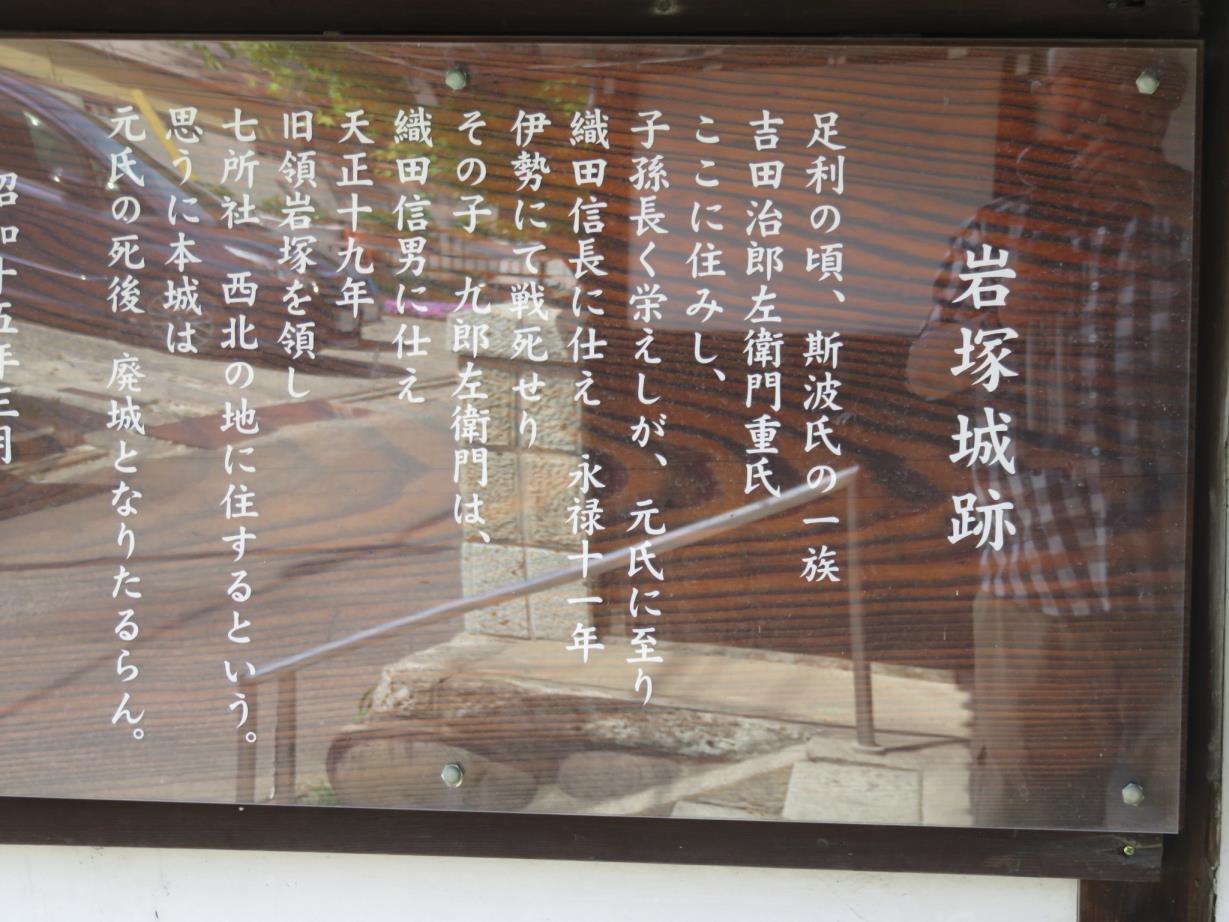 岩塚城跡
足利の頃、斯波氏の一族
吉田治郎左衛門重氏
ここに住みし、
子孫長く栄えしが、元氏に至り
織田信長に仕え 永禄十一年
伊勢にて戦死せり
その子 九郎左衛門は、
織田信男に仕え
天正十九年
旧領岩塚を領し
七所社 西北の地に住するという。
思うに本城は
元氏の死後 廃城となりたるらん。
昭和十五年三月